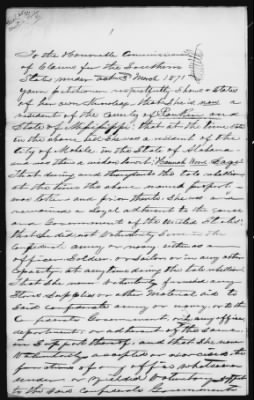 To the Honorable Commissioners
of Claims for the Southern
States under act 3 March 1871
Your petitioner respectfully shows & states
of her own knowledge that She is now a
resident of the County of Rankin and
State of Mississippi: that at the time
in the above She was a resident of the
City of Mobile in the State of Alabama
and was then a widow
That during and throughout the late rebellion
at the time the above named property
was taken and prior thereto She was and
remained a loyal adherent to the cause
and Government of the United States:
that She did not voluntarily Serve in the
Confederate Army or navy either as an
officer Soldier or Sailor or in any other
Capacity at any time during the late rebellion:
That She never Voluntarily furnished any
Stores Supplies or other Material aid to
Said Confederate army or navy, or to the
Confederate Government, or to any officer
department or adherent of the Same
in Support thereof, and that She never
Voluntarily accepted or exercised the
functions of any office whatsoever
under or yielded Voluntary Support
to the Said Confederate Government